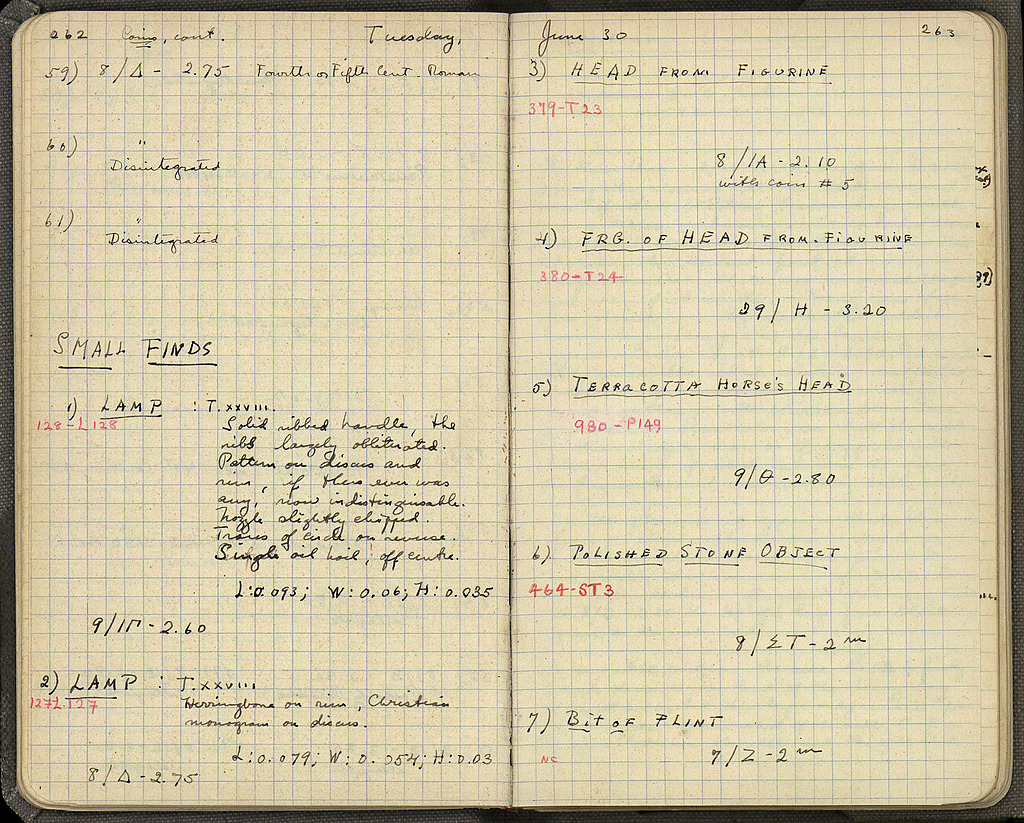 262 Coins, cont. Tuesday,
59) 8/Δ - 2.75 Fourth or Fifth Cent. Roman
60) "
Disintegrated
61) "
Disintegrated
SMALL FINDS
1) LAMP : T. XXVIII.
128-L128
Solid ribbed handle, the
ribs largely obliterated.
Pattern on discus and
rim, if there ever was
any, now indistinguisable.
Nozzle slightly chipped.
Traces of circle on reverse.
Single oil hole, off centre.
L: 0.093; W: 0.06; H: 0.035
9/ΙΓ - 2.60
2) LAMP : T. XXVIII
Herringbone on rim, Christian
monogram on discus.
L: 0.079; W: 0.054; H: 0.03
8/Δ - 2.75
June 30 263
3) HEAD FROM FIGURINE
379-T23
8/ΙΑ - 2.10
with coin # 5
4) FRG. OF HEAD FROM FIGURINE
380-T24
29/ H - 3.20
5) TERRACOTTA HORSE'S HEAD
980-P149
9/Θ - 2.80
6) POLISHED STONE OBJECT
464-ST3
8/ΣΤ - 2 m
7) Bit of FLINT
NC
7/Z - 2 m